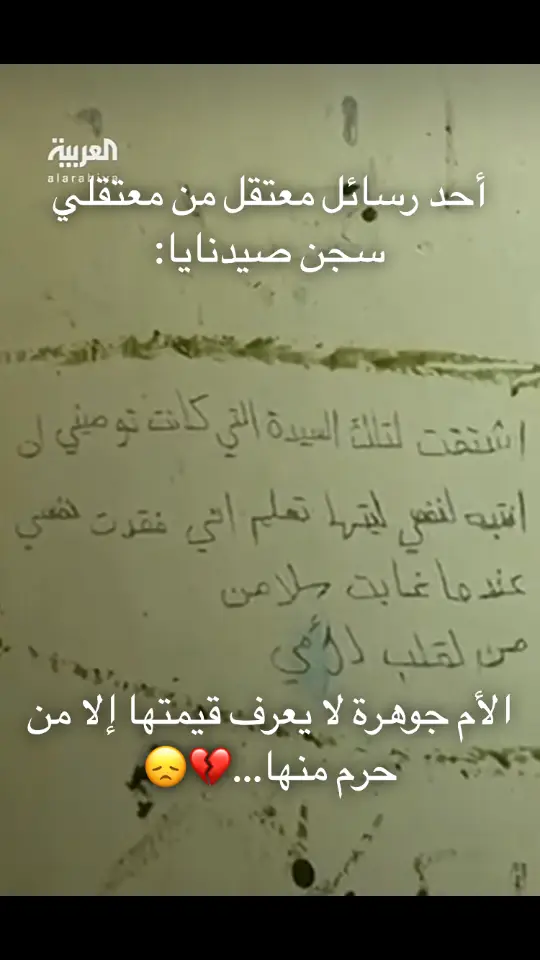 العربية
alarabiya
أحد رسائل معتقل من معتقلي
سجن صيدنايا:
اشتقت لتلك السيدة التي كانت توصيني ان
انتبه لنفسي ليتها تعلم اني فقدت نفسي
عندما غابت سلامن
من لقلب لأمي
الأم جوهرة لا يعرف قيمتها إلا من
حرم منها...💔😞